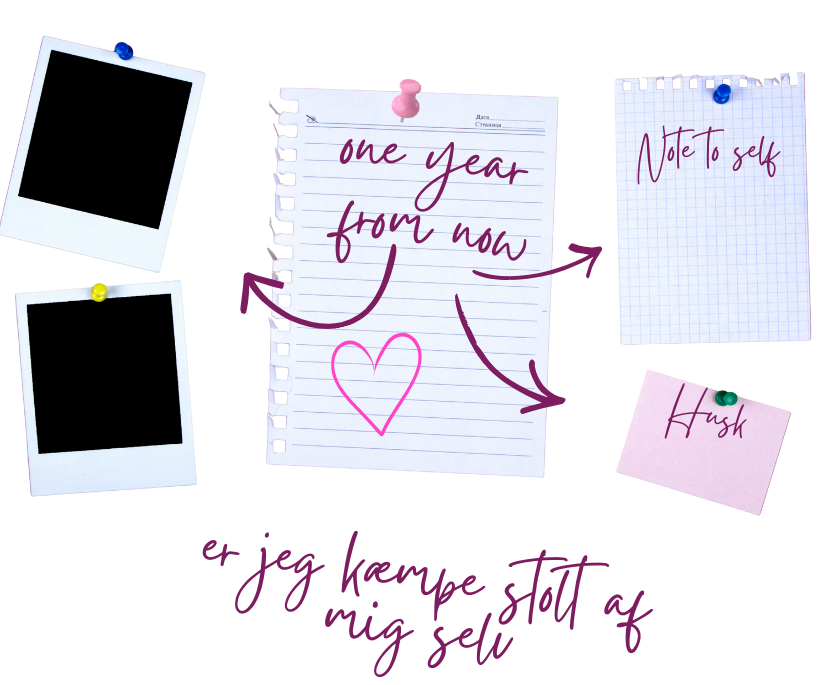 Дата
Страница
one year
from now
Note to self
Husk
er jeg kæmpe stolt af
mig selv